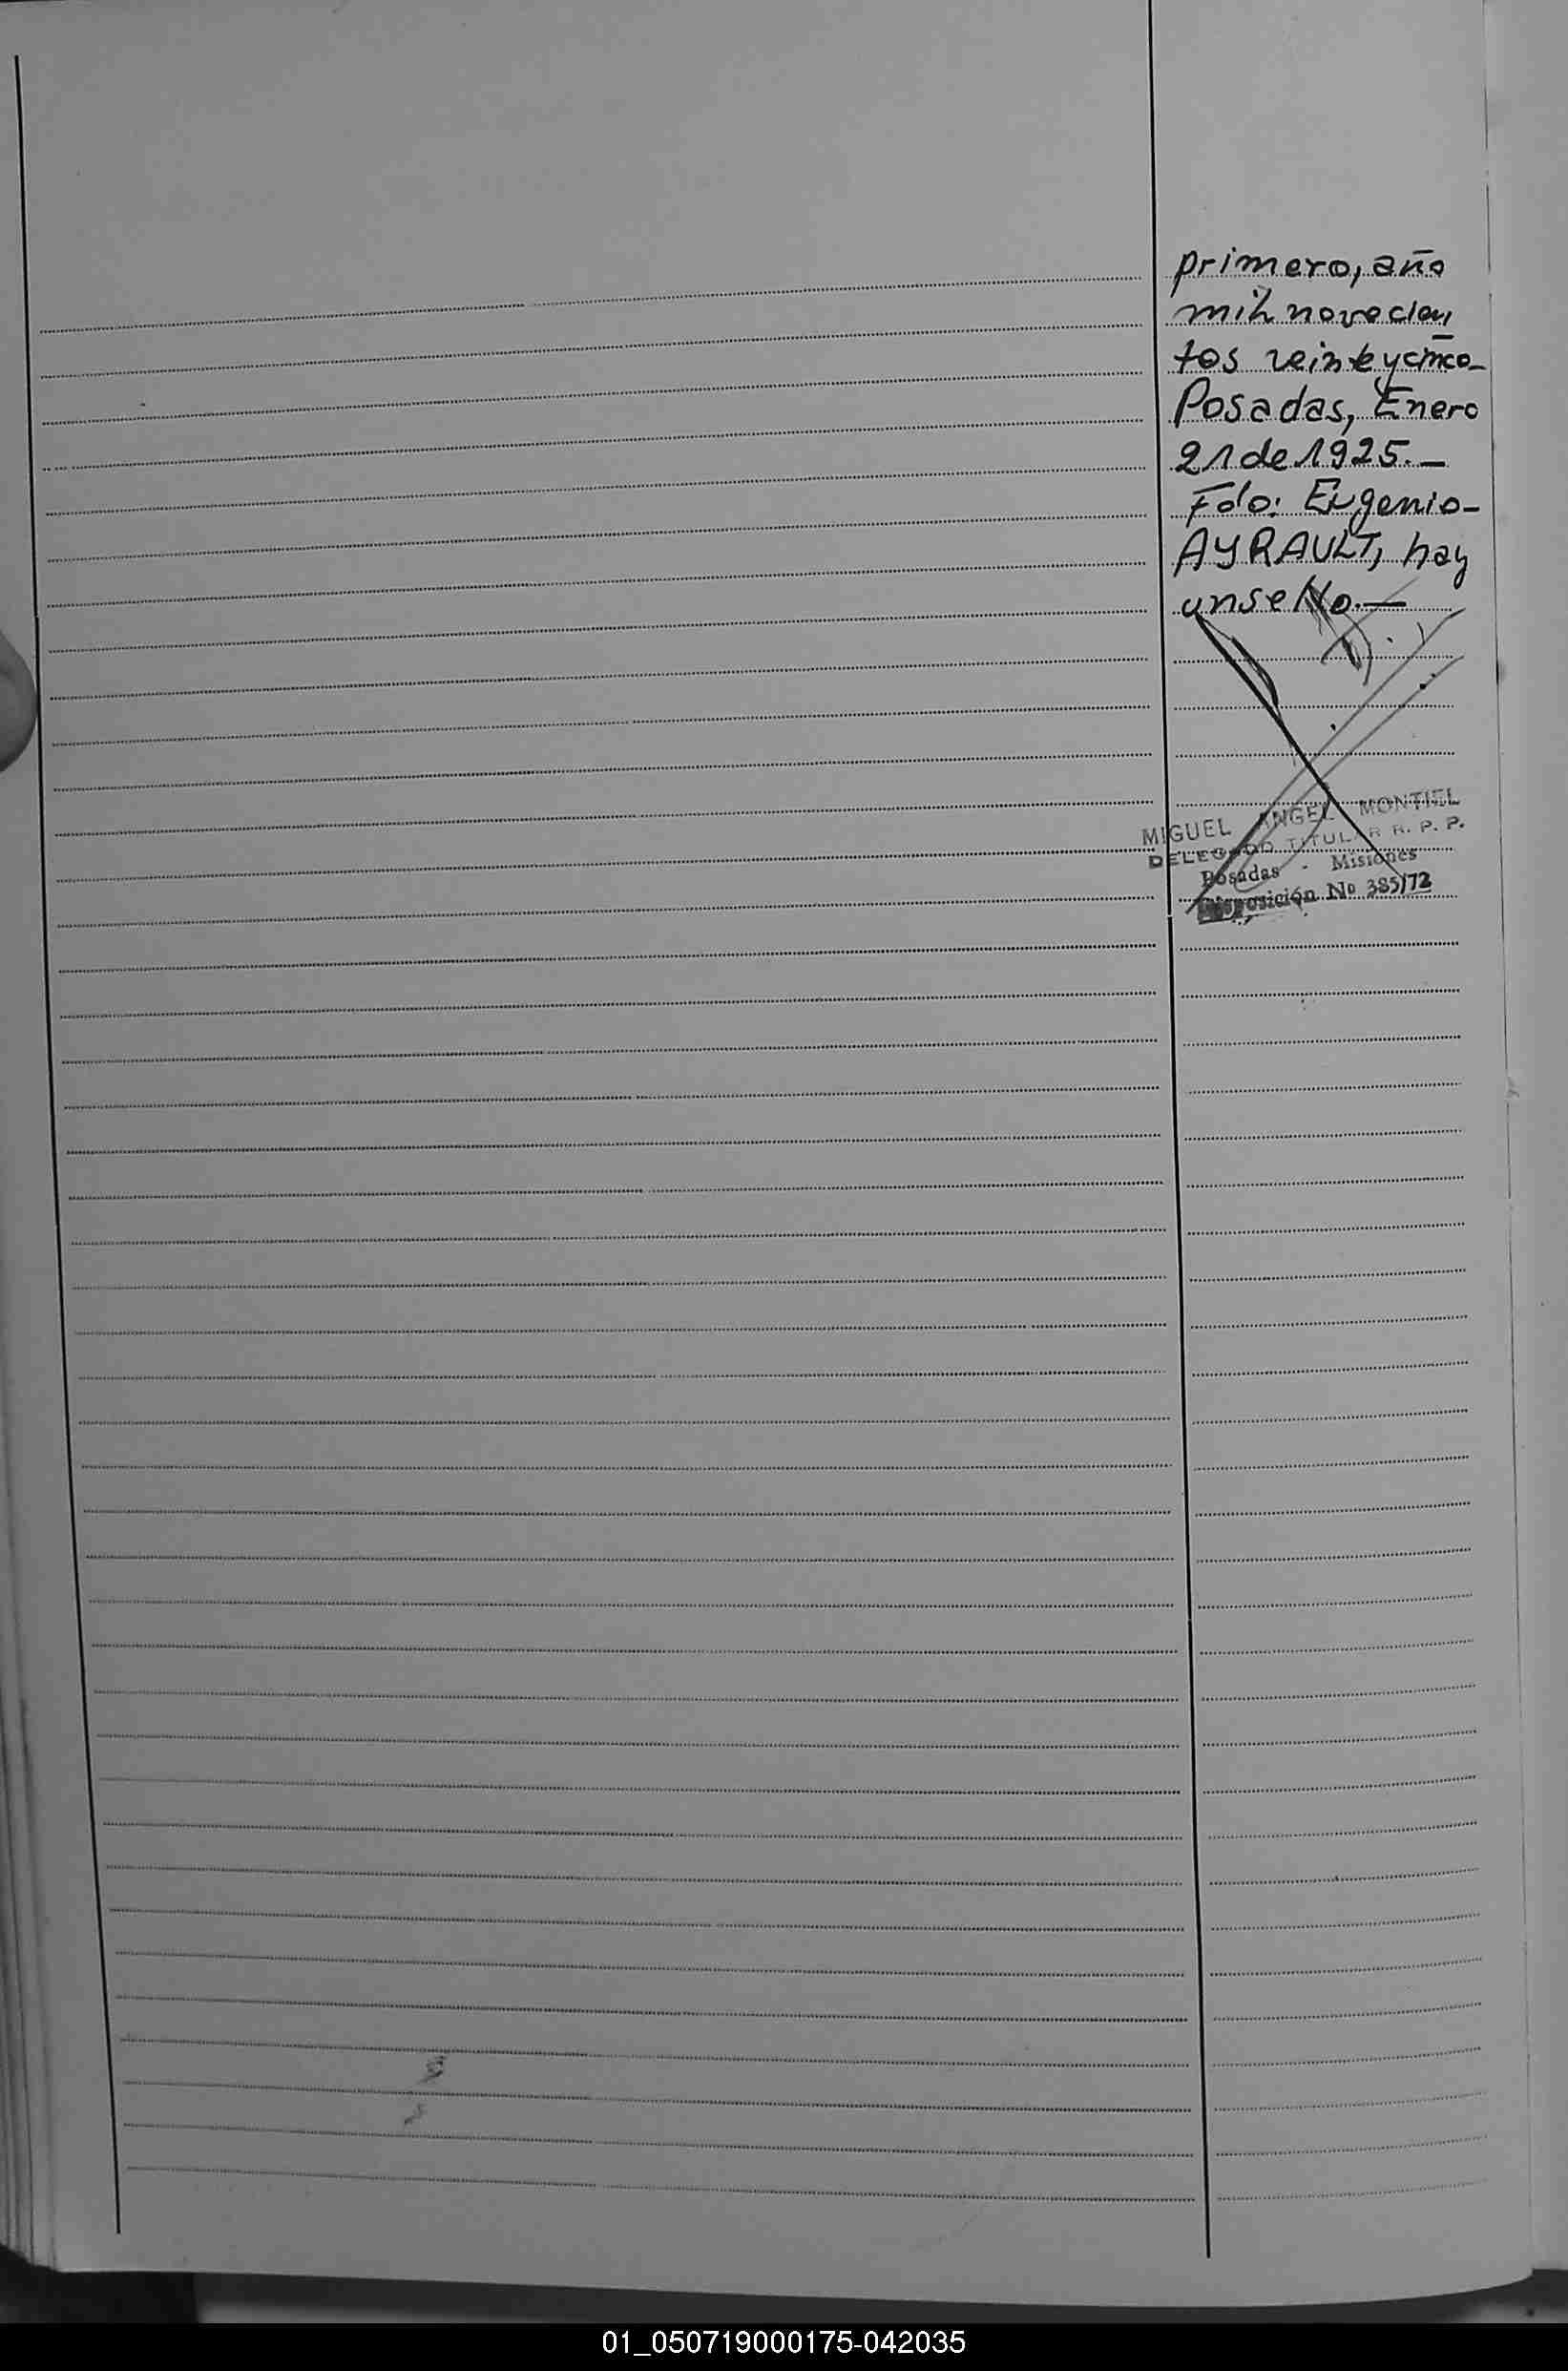 primero, año
mil novecien
tos veinteycinco-
Posadas, Enero
21 de 1925.-
Fdo: Eugenio-
AYRAULT, hay
un sello.-
MIGUEL ANGEL MONTIEL
DELEGADO TITULAR R. P. P.
Posadas - Misiones
Disposición Nº 385/72
01_050719000175-042035